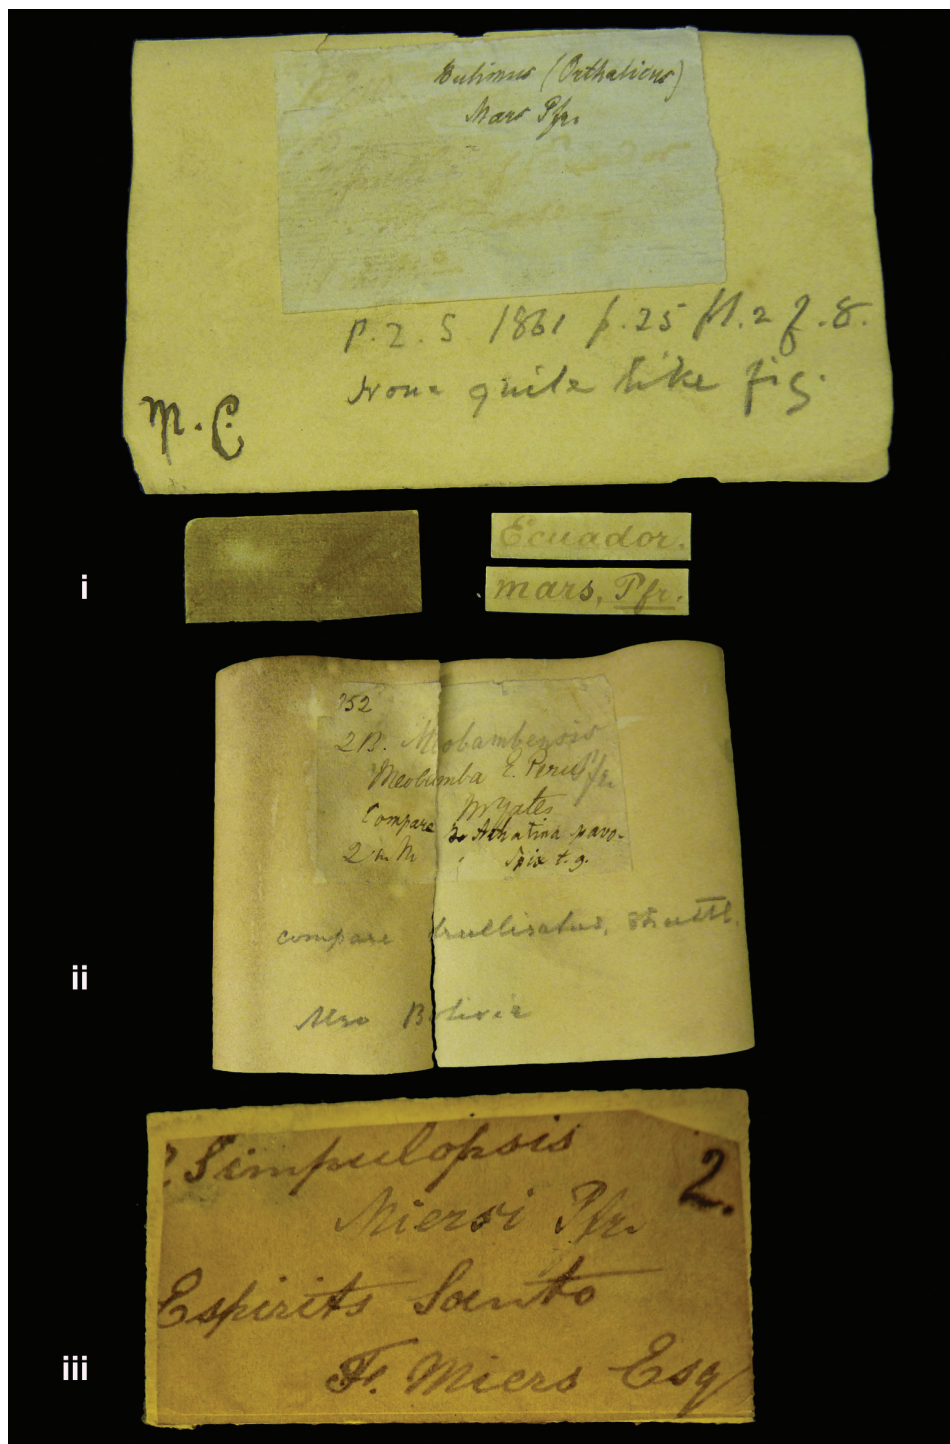 Bulimus (Orthalicus)
Mars Pfr.
P. Z. S. 1861 p. 25 pl. 2 f. 8.
None quite like fig.
M. C.
Ecuador.
i
mars, Pfr.
352
2 B. Meobambensis
Pfr.
Meobumba E. Peru
Mr Yates
Compare Achatina pavo-
2 in M Spix t. 9.
compare trullisatus, Shuttl.
ii
Also Bolivia
Simpulopsis
2.
Miersi Pfr.
Espirits Santo
iii
F. Miers Esq